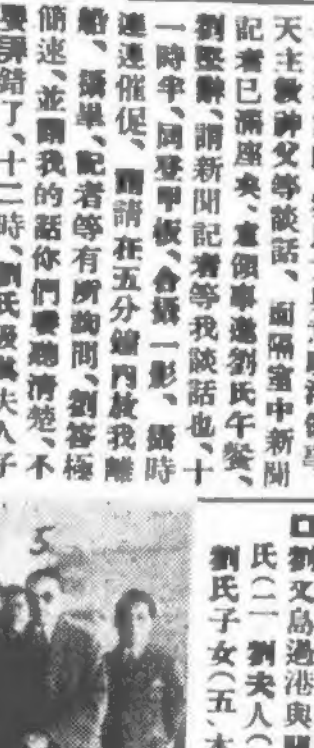 天主敎神父等談話、而隔室中新聞
記者已滿座矣、袁領事邀劉氏午餐、
劉堅辭、謂新聞記者等我談話也、十
一時半、同登甲板、合攝一影、攝時
連連催促、謂請在五分鐘內放我離
船、攝畢、記者等有所詢問、劉答極
簡速、並謂我的話你們要聽清楚、不
要弄錯了、十二時、劉氏
夫人子
劉文島過港與
氏(二 劉夫人(
劉氏子女(五、